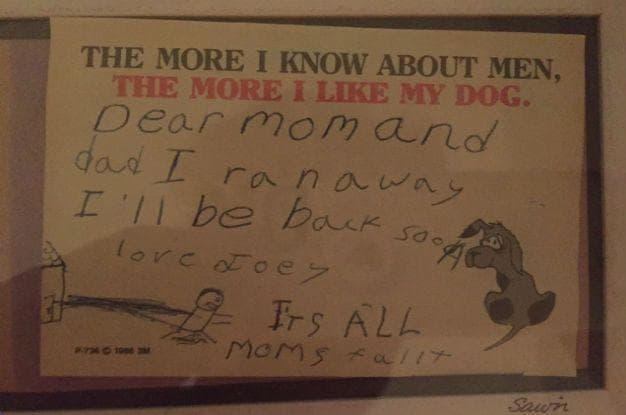 THE MORE I KNOW ABOUT MEN,
THE MORE I LIKE MY DOG.
Dear mom and
dad I ran away
I'll be back soon
love Joey
ITS ALL
Moms fallt
P-736 © 1986 3M
Sawin